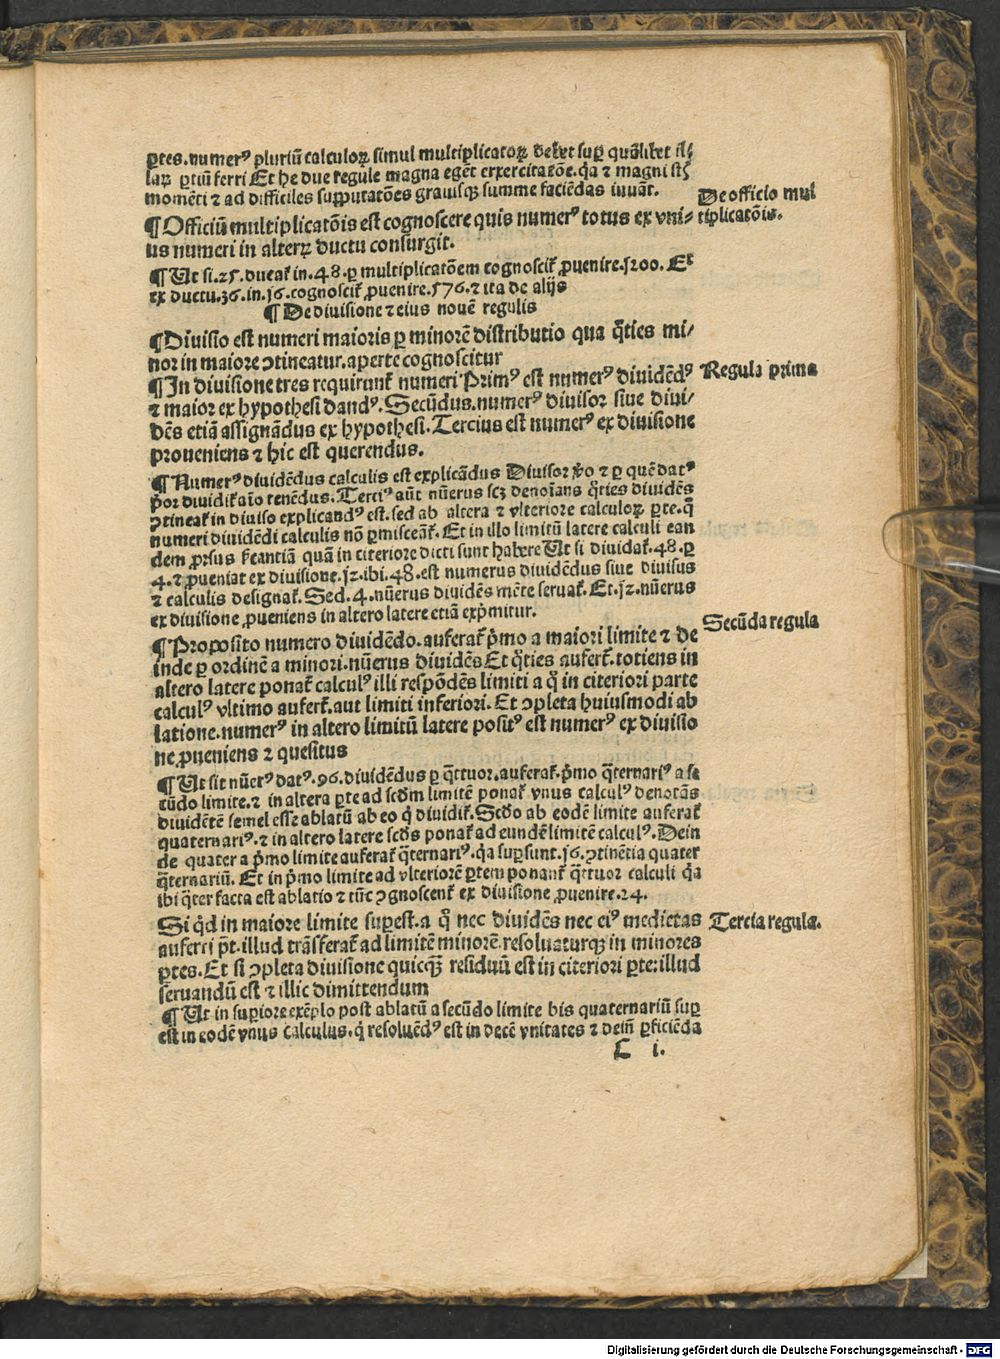 ꝑtes.numerꝰ pluriū calculoꝝ simul multiplicatoꝝ debet suꝑ quālibet il⸗
laꝝ ꝑtiū ferri Et he due regule magna egēt exercitatōe.q̄a ⁊ magni st̄
momēti ⁊ ad difficiles supputatōes grauisqꝫ summe faciēdas iuuāt.
De officio mul
tiplicatōis.
¶Officiū multiplicatōis est cognoscere quis numerꝰ totus ex vni⸗
us numeri in alterꝝ ductu consurgit.
¶Ut si.25.ducat̄ in.48.ꝑ multiplicatōem cognoscit̄ ꝓuenire.1200. Et
ex ductu.36.in.16.cognoscit̄ ꝓuenire.576.⁊ ita de alijs
¶De diuisione ⁊ eius nouē regulis
¶Diuisio est numeri maioris ꝑ minorē distributio qua q̄ties mi⸗
nor in maiore ↄtineatur.aperte cognoscitur
Regula prima
¶In diuisione tres requirunt̄ numeri Primꝰ est numerꝰ diuidēdꝰ
⁊ maior ex hypothesi dandꝰ.Secūdus.numerꝰ diuisor siue diui⸗
dēs etiā assignādus ex hypothesi.Tercius est numerꝰ ex diuisione
proueniens ⁊ hic est querendus.
¶Numerꝰ diuidēdus calculis est explicādus Diuisor v̄o ⁊ ꝑ quē datꝰ
p̄or diuidit̄ aīo tenēdus.Terciꝰ aūt nūerus scꝫ denoīans q̄ties diuidēs
ↄtineat̄ in diuiso explicandꝰ est.sed ab altera ⁊ vlteriore calculoꝝ ꝑte.q̄
numeri diuidēdi calculis nō ꝑmisceāt̄. Et in illo limitū latere calculi ean
dem ꝓrsus
quā in citeriore dicti sunt habere Ut si diuidat̄.48.ꝑ
4.⁊ ꝓueniat ex diuisione.12.ibi.48.est numerus diuidēdus siue diuisus
⁊ calculis designat̄. Sed.4.nūerus diuidēs mēte seruat̄. Et.12.nūerus
ex diuisione ꝓueniens in altero latere etiā exp̄mitur.
Secūda regula
¶Proposito numero diuidēdo.auferat̄ p̄mo a maiori limite ⁊ de
inde ꝑ ordinē a minori.nūerus diuidēs Et q̄ties aufert̄.totiens in
altero latere ponat̄ calculꝰ illi respōdēs limiti a q̄ in citeriori parte
calculꝰ vltimo aufert̄.aut limiti inferiori. Et ↄpleta huiusmodi ab
latione.numerꝰ in altero limitū latere positꝰ est numerꝰ ex diuisio
ne ꝓueniens ⁊ quesitus
¶Ut sit nūerꝰ datꝰ.96.diuidēdus ꝑ q̄ttuor.auferat̄ p̄mo q̄ternariꝰ a se
cūdo limite.⁊ in altera ꝑte ad scd̄m limitē ponat̄ vnus calculꝰ denotās
diuidētē semel esse ablatū ab eo q̄ diuidit̄. Scd̄o ab eodē limite auferat̄
quaternariꝰ.⁊ in altero latere scd̄s ponat̄ ad eundē limitē calculꝰ.Dein
de quater a p̄mo limite auferat̄ q̄ternariꝰ.q̄a suꝑsunt.16.ↄtinētia quater
q̄ternariū. Et in p̄mo limite ad vlteriorē ꝑtem ponant̄ q̄ttuor calculi q̄a
ibi q̄ter facta est ablatio ⁊ tūc ↄgnoscent̄ ex diuisione ꝓuenire.24.
Tercia regula.
Si q̄d in maiore limite suꝑest.a q̄ nec diuidēs nec eiꝰ medietas
auferri p̄t.illud trāsferat̄ ad limitē minorē.resoluaturqꝫ in minores
ꝑtes.Et si ↄpleta diuisione quicqꝫ̄ residuū est in citeriori ꝑte:illud
seruandū est ⁊ illic dimittendum
¶Ut in suꝑiore exēplo post ablatū a secūdo limite bis quaternariū suꝑ
est in eodē vnus calculus.q̄ resoluēdꝰ est in decē vnitates ⁊ dein̄ ꝑficiēda
C i.
Digitalisierung gefördert durch die Deutsche Forschungsgemeinschaft - DFG